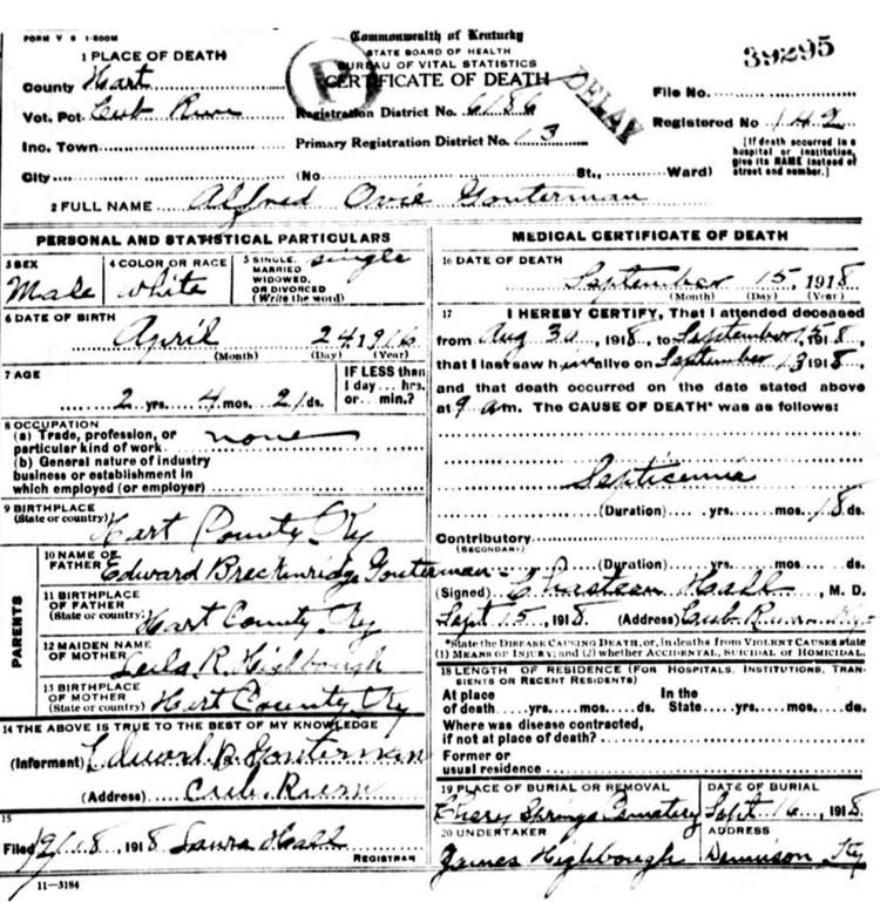 FORM V S 1-500M
Commonwealth of Kentucky
STATE BOARD OF HEALTH
BUREAU OF VITAL STATISTICS
CERTIFICATE OF DEATH
P
DELAY
39295
1 PLACE OF DEATH
County Hart
Vot. Pct. Cub Run
Registration District No. 6186
File No.
Inc. Town
Primary Registration District No. 13
Registered No 142
[If death occurred in a hospital or institution, give its NAME instead of street and number.]
City (No. St., Ward)
2 FULL NAME Alfred Ovie Gouterman
PERSONAL AND STATISTICAL PARTICULARS
3 SEX Male
4 COLOR OR RACE white
5 SINGLE, MARRIED WIDOWED, OR DIVORCED (Write the word) single
6 DATE OF BIRTH
April 24 1916
(Month) (Day) (Year)
7 AGE
2 yrs. 4 mos. 21 ds.
IF LESS than 1 day... hrs. or... min.?
8 OCCUPATION
(a) Trade, profession, or
particular kind of work none
(b) General nature of industry
business or establishment in
which employed (or employer)
9 BIRTHPLACE
(State or country) Hart County Ky
PARENTS
10 NAME OF FATHER Edward Breckinridge Gouterman
11 BIRTHPLACE OF FATHER (State or country) Hart County Ky
12 MAIDEN NAME OF MOTHER Leila R Highbough
13 BIRTHPLACE OF MOTHER (State or country) Hart County Ky
14 THE ABOVE IS TRUE TO THE BEST OF MY KNOWLEDGE
(Informent) Edward B Gouterman
(Address) Cub Run
15
Filed 9/18, 1918 Laura Hall
REGISTRAR
11-3184
MEDICAL CERTIFICATE OF DEATH
16 DATE OF DEATH
September 15, 1918
(Month) (Day) (Year)
17 I HEREBY CERTIFY, That I attended deceased
from Aug 30, 1918, to September 15, 1918,
that I last saw him alive on September 13 1918,
and that death occurred on the date stated above
at 9 am. The CAUSE OF DEATH* was as follows:
Septicemia
(Duration) yrs. mos. 18 ds.
Contributory
(SECONDARY)
(Duration) yrs. mos. ds.
(Signed) Chasteen Hall, M. D.
Sept 15, 1918. (Address) Cub Run Ky
*State the DISEASE CAUSING DEATH, or, in deaths from VIOLENT CAUSES state
(1) MEANS OF INJURY; and (2) whether ACCIDENTAL, SUICIDAL or HOMICIDAL.
18 LENGTH OF RESIDENCE (FOR HOSPITALS, INSTITUTIONS, TRANSIENTS OR RECENT RESIDENTS)
At place In the
of death yrs. mos. ds. State yrs. mos. ds.
Where was disease contracted,
if not at place of death?
Former or
usual residence
19 PLACE OF BURIAL OR REMOVAL
DATE OF BURIAL
Chery Springs Cematery Sept 16, 1918
20 UNDERTAKER
ADDRESS
James Highbough Dennison Ky